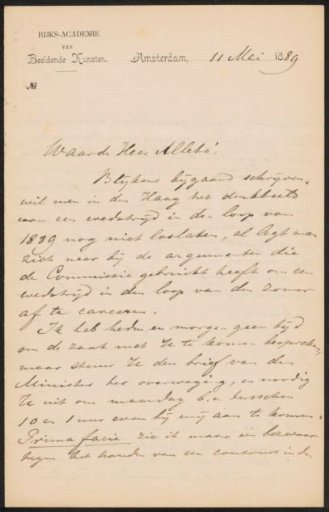 RIJKS-ACADEMIE
VAN
Beeldende Kunsten.
Amsterdam, 11 Mei 1889
№
Waarde Heer Allebé!
Blijkens bijgaand schrijven
wil men in den Haag het denkbeeld
van een wedstrijd in den loop van
1889 nog niet loslaten, al legt men
zich neer bij de argumenten die
de Commissie gebruikt heeft om een
wedstrijd in den loop van den zomer
af te
Ik heb heden en morgen geen tijd
om de zaak met U te komen bespreken,
maar stuur U den brief van den
Minister ter overweging, en noodig
U uit om maandag a.s. tusschen
10 en 1 uur even bij mij aan te komen.
Prima facie zie ik maar één bezwaar
tegen het houden van een concours in den